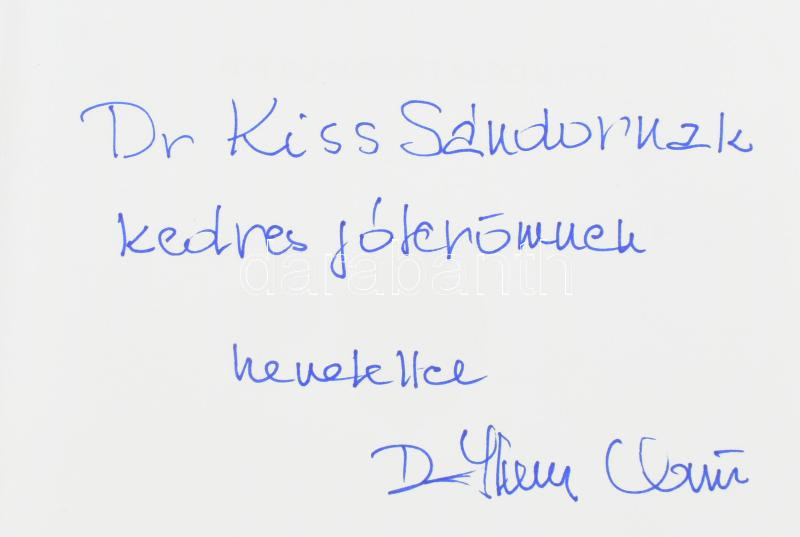 Dr Kiss Sándornak
kedves jótevőmnek
szeretettel
Dr
darabanth